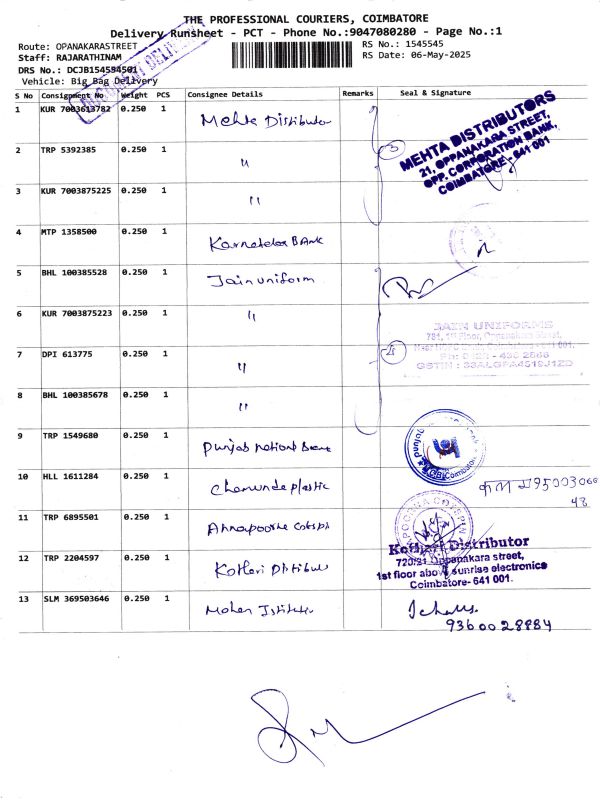 THE PROFESSIONAL COURIERS, COIMBATORE
Delivery Runsheet - PCT - Phone No.:9047080280 - Page No.:1
Route: OPANAKARASTREET
RS No.: 1545545
Staff: RAJARATHINAM
RS Date: 06-May-2025
DRS No.: DCJB154554501
Vehicle: Big Bag Delivery
S No Consignment No Weight PCS Consignee Details Remarks Seal & Signature
1 KUR 7003613782 0.250 1 Mehta Distributor
MEHTA DISTRIBUTORS
21, OPPANAKARA STREET,
OPP. CORPORATION BANK,
COIMBATORE - 641 001
3
2 TRP 5392385 0.250 1 "
3 KUR 7003875225 0.250 1 "
4 MTP 1358500 0.250 1 Karnataka Bank
5 BHL 100385528 0.250 1 Jain uniform
6 KUR 7003875223 0.250 1 "
JAIN UNIFORMS
781, 1st Floor, Oppanakara Street,
4
7 DPI 613775 0.250 1 "
8 BHL 100385678 0.250 1 "
9 TRP 1549680 0.250 1 Punjab national Bank
10 HLL 1611284 0.250 1 Chamunda plastic
11 TRP 6895501 0.250 1 Annapoorna
12 TRP 2204597 0.250 1 Kothari Distributor
Kothari Distributor
720/21 Oppanakara street,
1st floor above sunrise electronics
Coimbatore- 641 001.
13 SLM 369503646 0.250 1 Mohan
9360028884